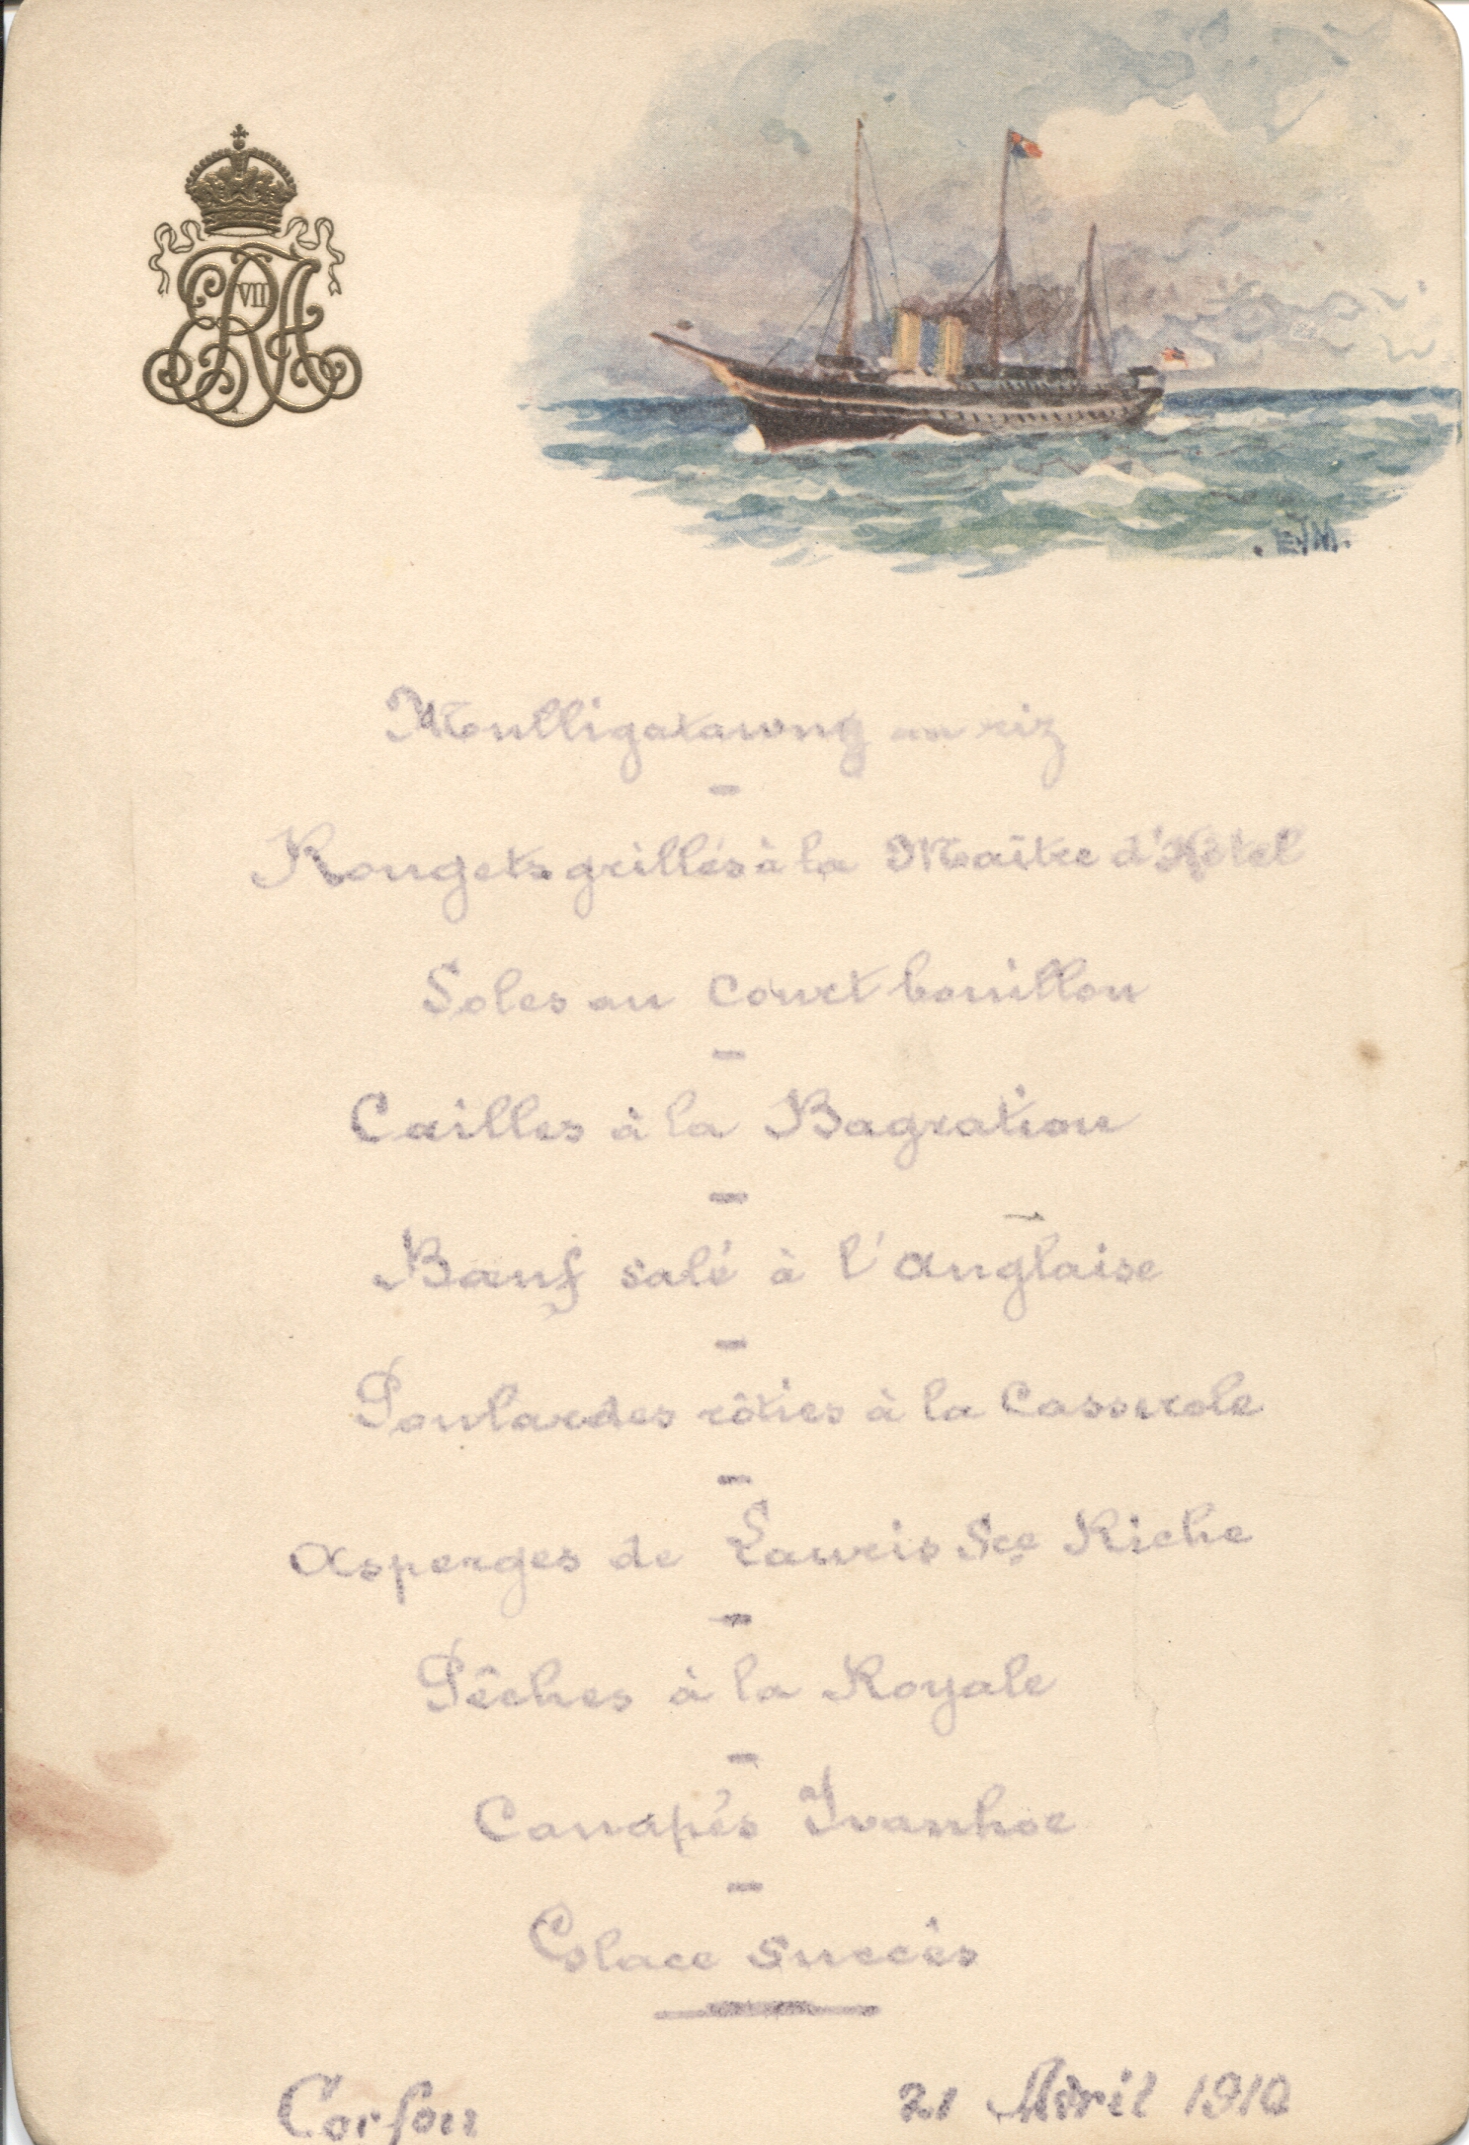 ERA
VII
EJM.
Moulligatawny au riz
Rougets grillés à la Maître d'Hôtel
Soles au Court bouillon
Cailles à la Bagration
Bœuf salé à l'anglaise
Poulardes rôties à la Casserole
Asperges de Lauris Sce Riche
Pêches à la Royale
Canapés Ivanhoe
Glace Succès
Corfou 21 Avril 1910